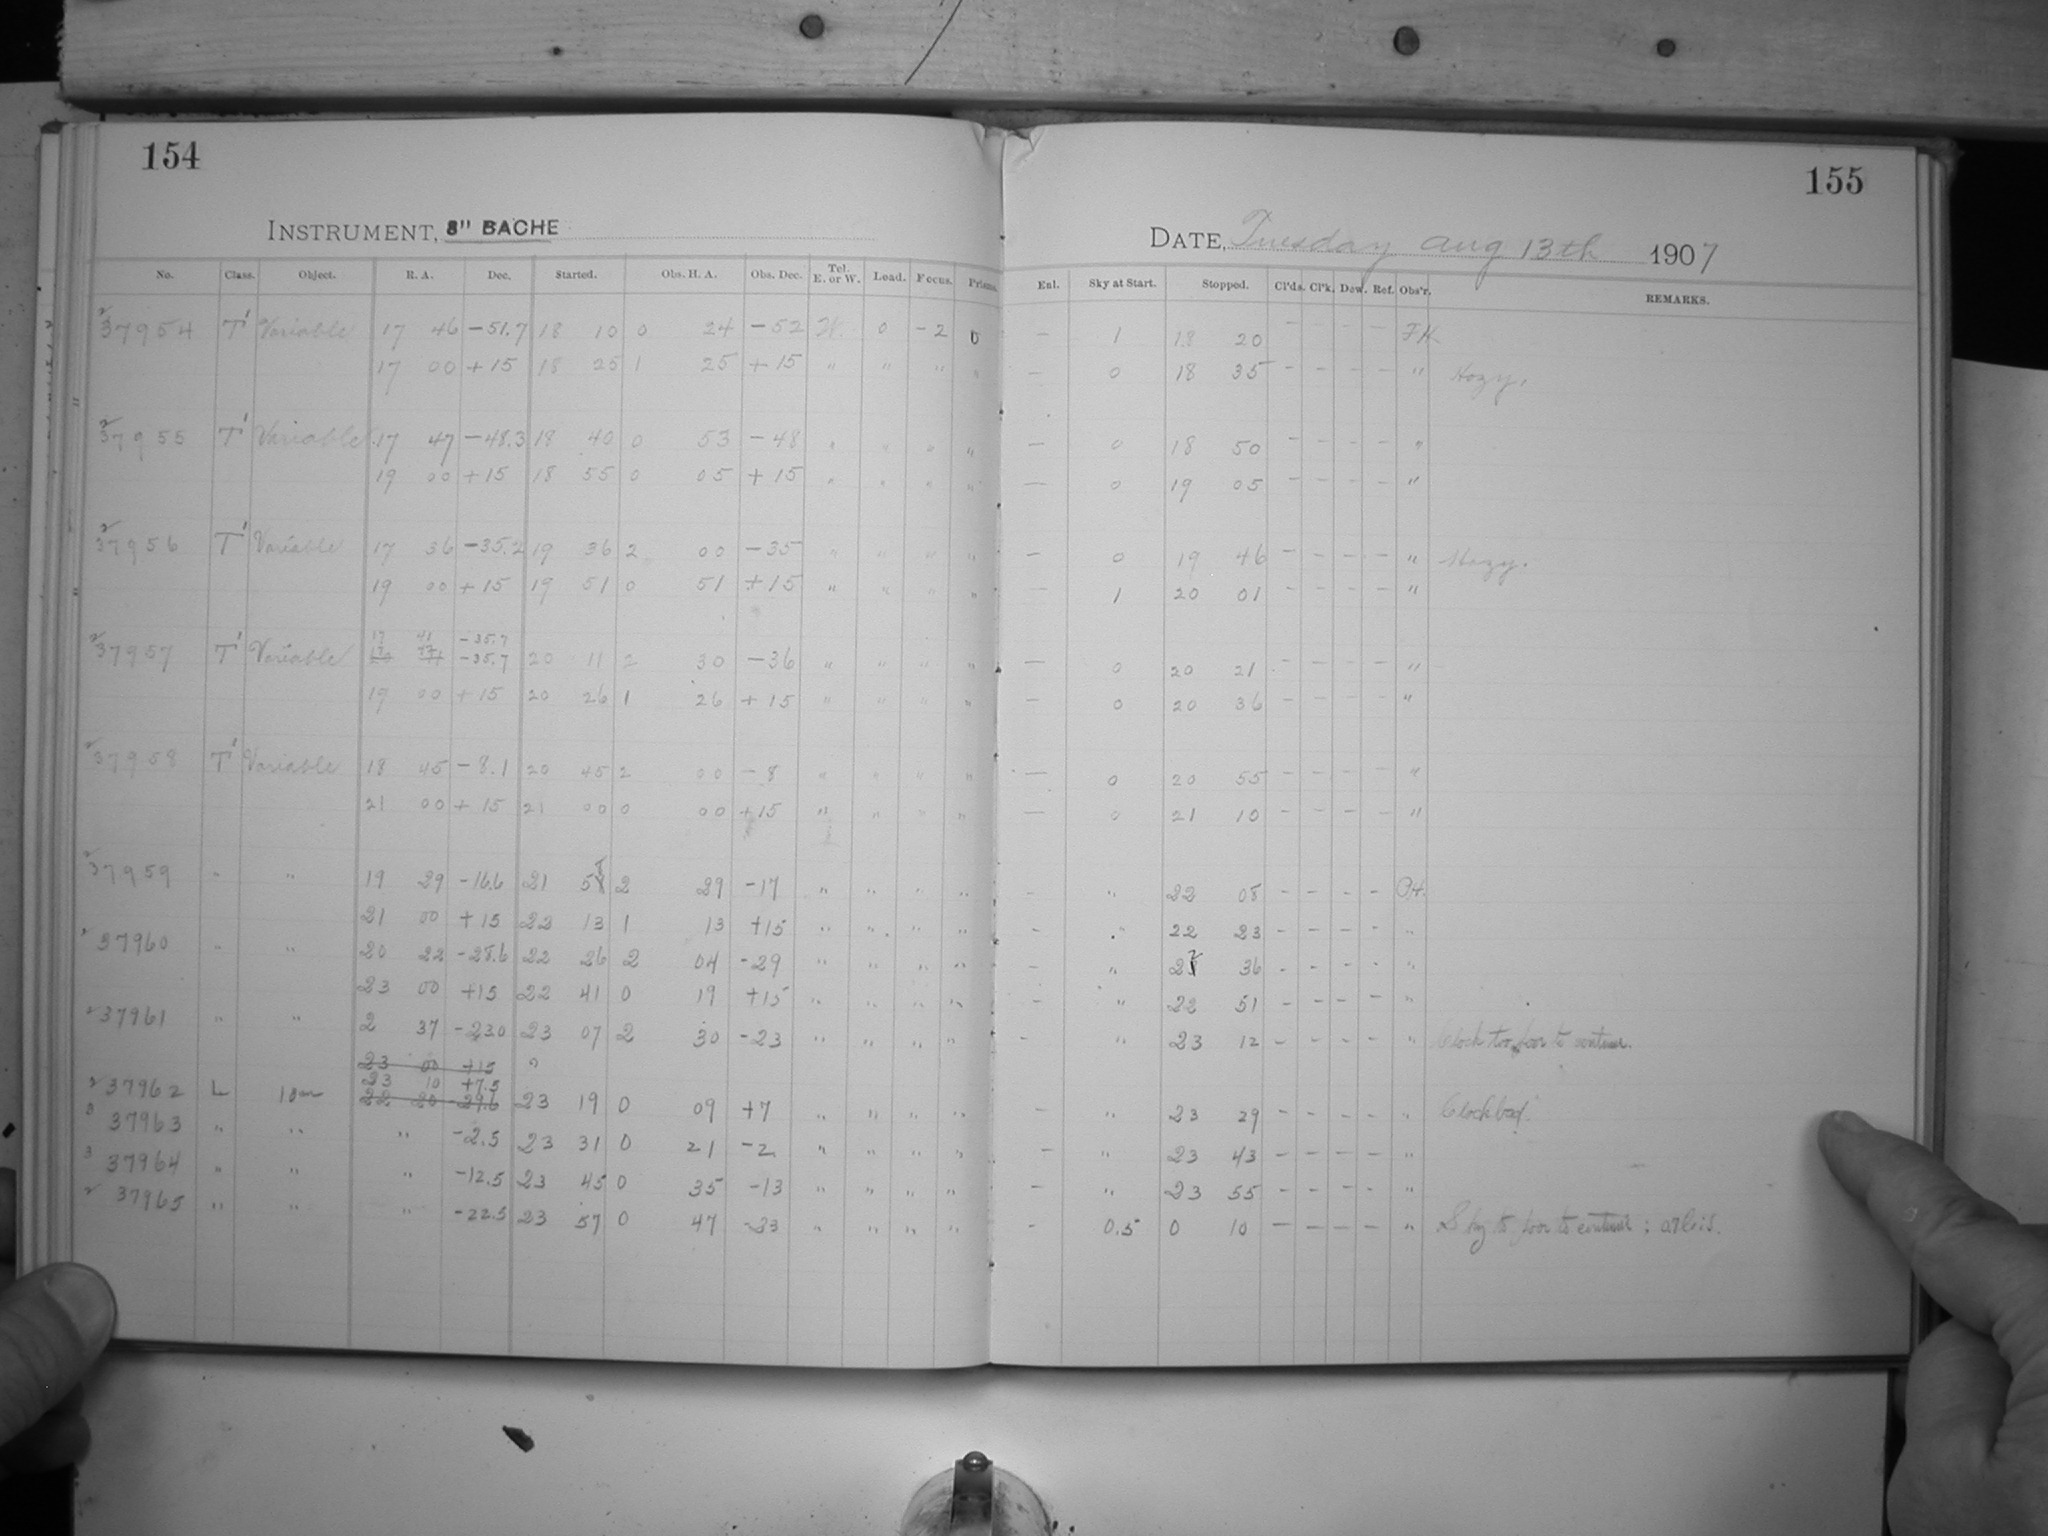 154
155
INSTRUMENT, 8" BACHE
DATE, Tuesday Aug 13th 1907
No. Class. Object. R. A. Dec. Started. Obs. H. A. Obs. Dec. Tel. E. or W. Lead. Focus. Prisms. Enl. Sky at Start. Stopped. Cl'ds. Cl'k. Dew. Ref. Obs'r. REMARKS.
2 37954 T' Variable 17 46 -51.7 18 10 0 24 -52 W. 0 -2 0 — 1 18 20 - - - - FK
17 00 +15 18 25 1 25 +15 " " " " — 0 18 35 - - - - " Hazy.
2 37955 T' Variable 17 47 -48.3 18 40 0 53 -48 " " " " — 0 18 50 - - - - "
19 00 +15 18 55 0 05 +15 " " " " — 0 19 05 - - - - "
2 37956 T' Variable 17 36 -35.2 19 36 2 00 -35 " " " " — 0 19 46 - - - - " Hazy.
19 00 +15 19 51 0 51 +15 " " " " — 1 20 01 - - - - "
17 41 -35.7
2 37957 T' Variable -35.7 20 11 2 30 -36 " " " " — 0 20 21 - - - - "
19 00 +15 20 26 1 26 +15 " " " " — 0 20 36 - - - - "
2 37958 T' Variable 18 45 -8.1 20 45 2 00 -8 " " " " — 0 20 55 - - - - "
21 00 +15 21 00 0 00 +15 " " " " — 0 21 10 - - - - "
2 37959 " " 19 29 -16.6 21 58 2 29 -17 " " " " - " 22 08 - - - -
21 00 +15 22 13 1 13 +15 " " " " - " 22 23 - - - - "
2 37960 " " 20 22 -28.6 22 26 2 04 -29 " " " " - " 22 36 - - - - "
23 00 +15 22 41 0 19 +15 " " " " - " 22 51 - - - - "
2 37961 " " 2 37 -23.0 23 07 2 30 -23 " " " " - " 23 12 - - - - " Clock too poor to continue.
23 00 +15
23 10 +7.5
2 37962 L 10m 22 20 -29.6 23 19 0 09 +7 " " " " - " 23 29 - - - - " Clock bad.
3 37963 " " " -2.5 23 31 0 21 -2 " " " " - " 23 43 - - - - "
3 37964 " " " -12.5 23 45 0 35 -13 " " " " - " 23 55 - - - - "
2 37965 " " " -22.5 23 57 0 47 -23 " " " " - 0.5 0 10 - - - - " Sky to poor to continue ;